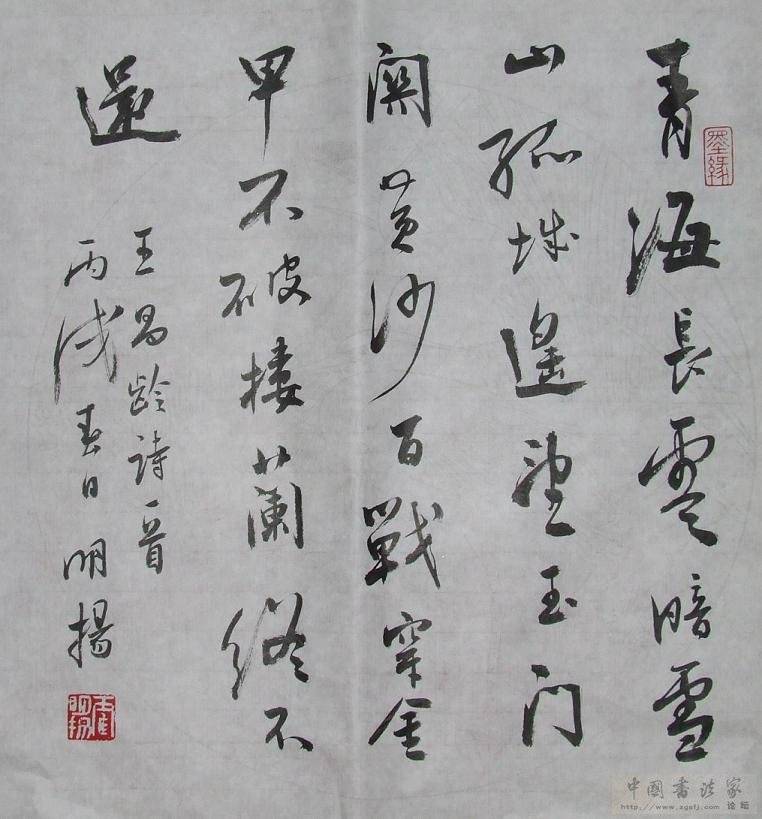 青海長雲暗雪
山孤城遥望玉门
關黄沙百戰穿金
甲不破樓蘭終不
還
王昌齡詩一首
丙戌春日明揚
墨緣
中國書法家
http://www.zgsfj.com 论坛